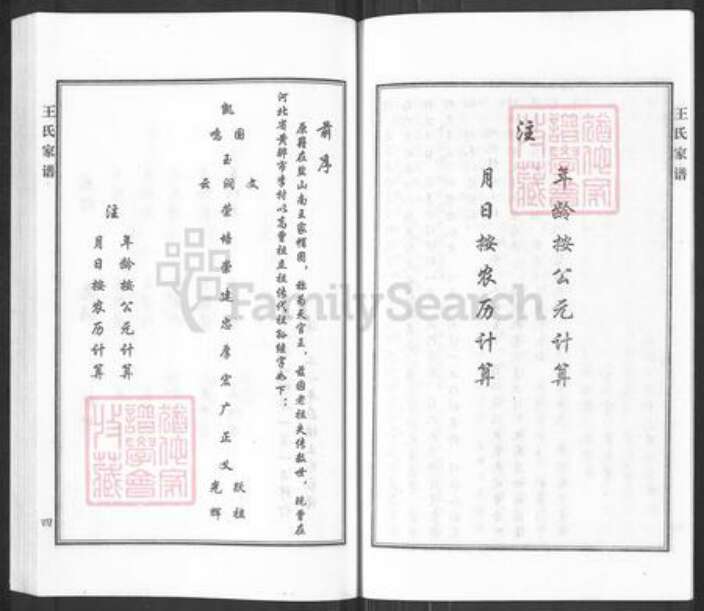 王氏家谱
注
年龄按公元计算
月日按农历计算
前序
原籍在盐山南王家帽圈，称为天官王，前因老祖失传数世，现曾在
河北省黄骅市李村以高曾祖立祖传代祖孙继字如下：
国 文
凯 玉润荣培崇建忠厚宏广正义 跃祖
鸣 云 光辉
注
年龄按公元计算
月日按农历计算
王氏家谱
四
FamilySearch